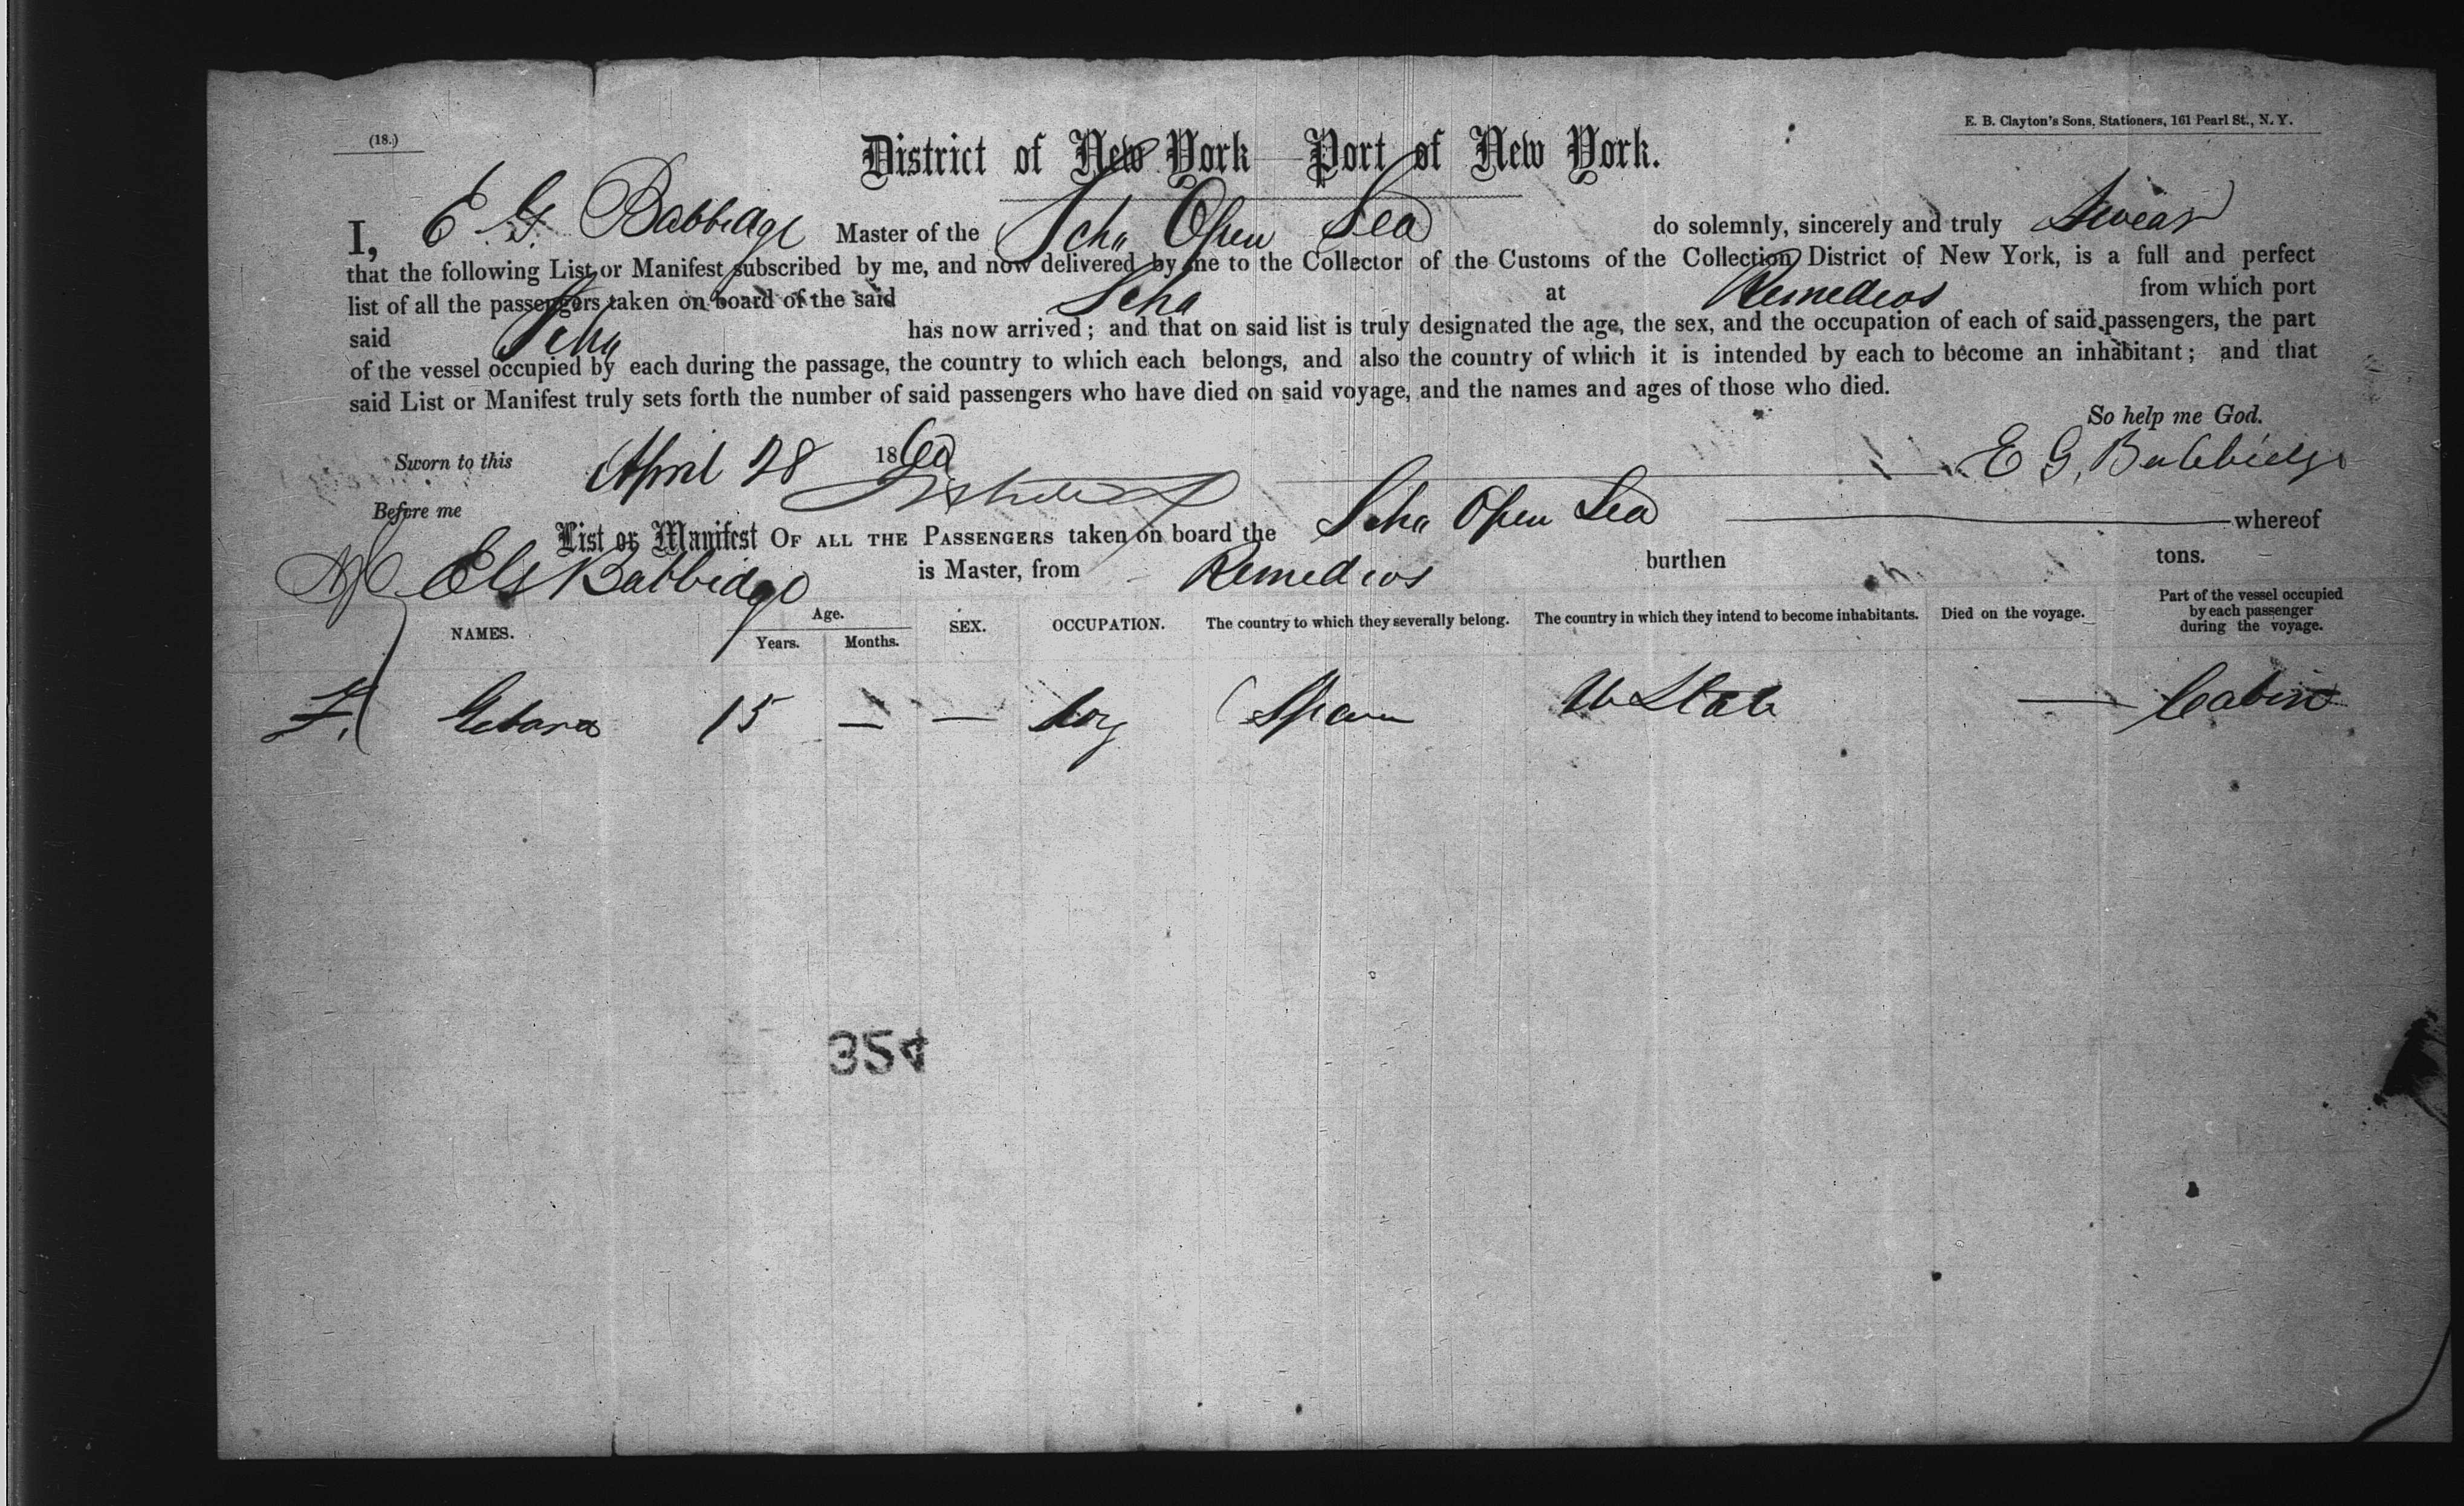 (18.)
E. B. Clayton's Sons, Stationers, 161 Pearl St., N. Y.
District of New York Port of New York.
I, E G. Babbidge Master of the Schr Open Sea do solemnly, sincerely and truly Swear
that the following List or Manifest subscribed by me, and now delivered by me to the Collector of the Customs of the Collection District of New York, is a full and perfect
list of all the passengers taken on board of the said Schr at Remedios from which port
said Schr has now arrived; and that on said list is truly designated the age, the sex, and the occupation of each of said passengers, the part
of the vessel occupied by each during the passage, the country to which each belongs, and also the country of which it is intended by each to become an inhabitant; and that
said List or Manifest truly sets forth the number of said passengers who have died on said voyage, and the names and ages of those who died.
So help me God.
Sworn to this April 28 1860 E G, Babbidge
Before me
List or Manifest OF ALL THE PASSENGERS taken on board the Schr Open Sea whereof
E G Babbidge is Master, from Remedios burthen tons.
NAMES. Age. Years. Months. SEX. OCCUPATION. The country to which they severally belong. The country in which they intend to become inhabitants. Died on the voyage. Part of the vessel occupied by each passenger during the voyage.
F. 15 — — boy Spain U State — Cabin
354